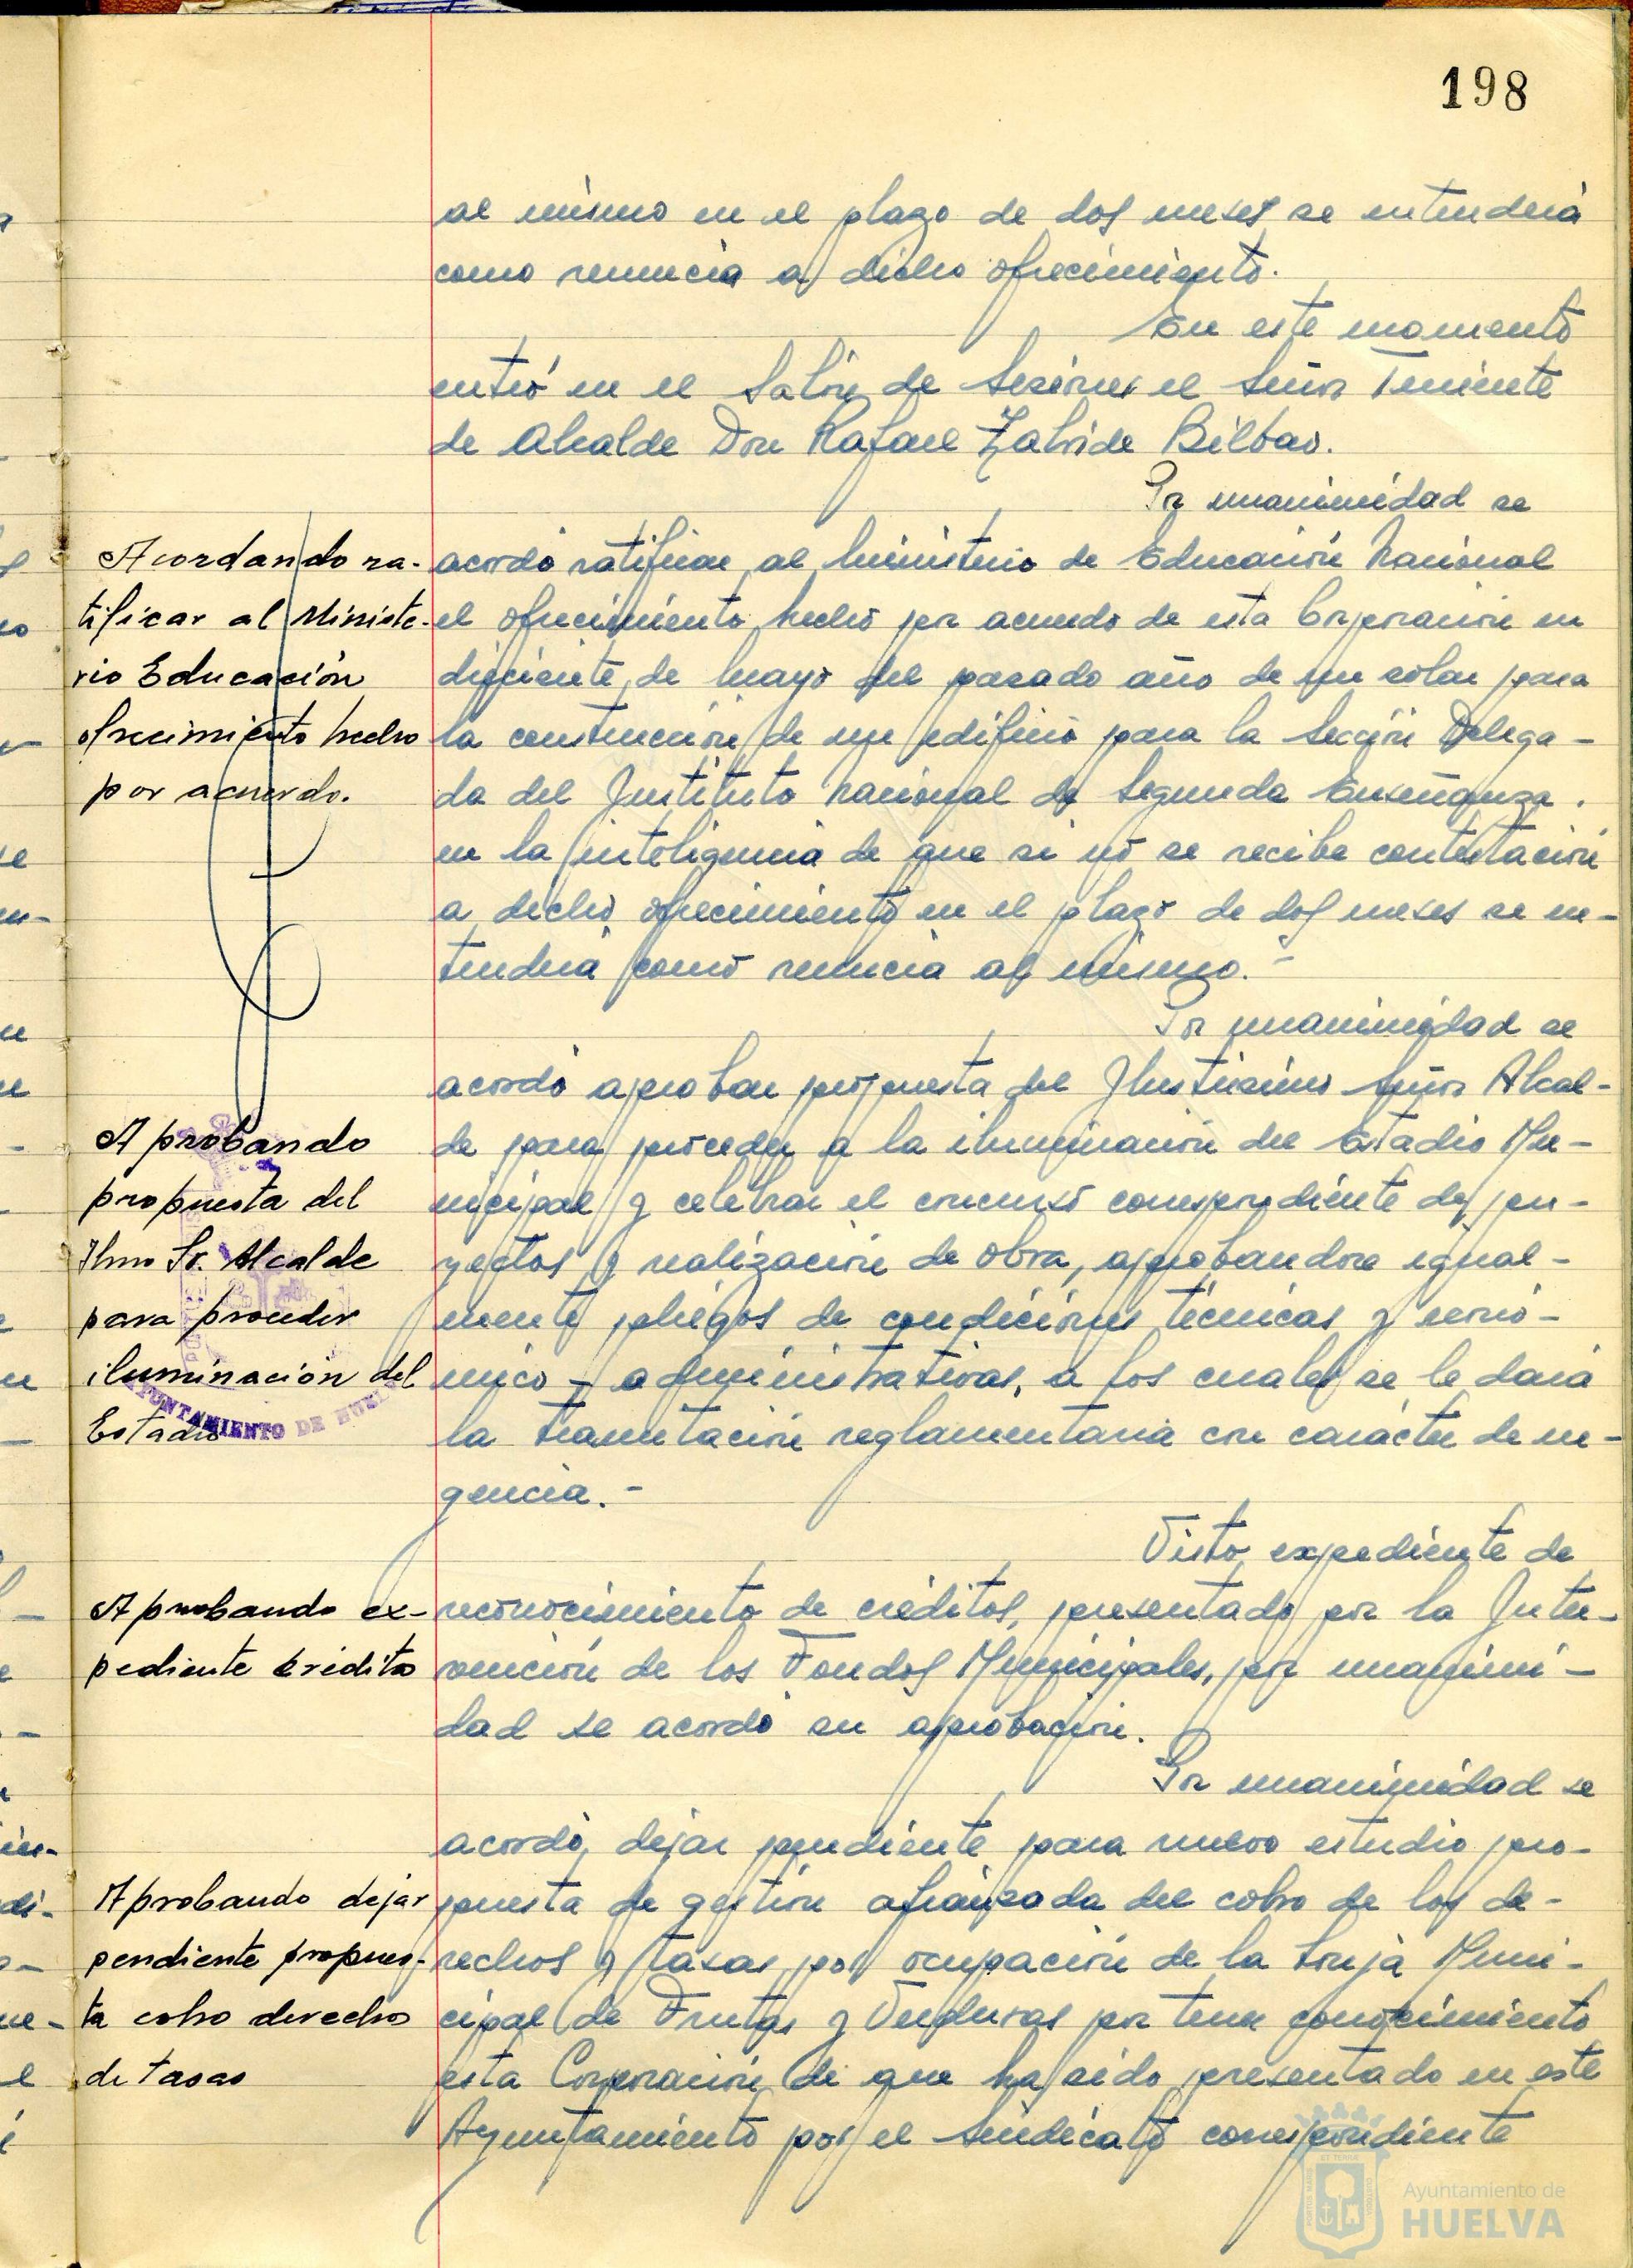 198
al mismo en el plazo de dos meses se entenderá
como renuncia a dicho ofrecimiento.
En este momento
entró en el Salón de Sesiones el Señor Teniente
de Alcalde Don Rafael Zalvide Bilbao.
Por unanimidad se
Acordando ra-
tificar al Ministe-
rio Educación
ofrecimiento hecho
por acuerdo.
acordó ratificar al Ministerio de Educación Nacional
el ofrecimiento hecho por acuerdo de esta Corporación en
de Mayo del pasado año de un solar para
la construcción de un edificio para la Sección Delega-
da del Instituto Nacional de Segunda Enseñanza.
en la inteligencia de que si nó se recibe contestación
a dicho ofrecimiento en el plazo de dos meses se en-
tenderá como renuncia al mismo.-
Por unanimidad se
acordó aprobar propuesta del Ilustrísimo Señor Alcal-
Aprobando
propuesta del
Ilmo Sr. Alcalde
para proceder
iluminación del
Estadio
AYUNTAMIENTO DE HUELVA
de para proceder a la iluminación del Estadio Mu-
nicipal y celebrar el concurso correspondiente de pro-
yectos y realización de obra, aprobandose igual-
mente pliegos de condiciones técnicas y econó-
mico - administrativas, a los cuales se le dará
la tramitación reglamentaria con carácter de ur-
gencia.-
Visto expediente de
Aprobando ex-
pediente crédito
reconocimiento de créditos, presentado por la Inter-
vención de los Fondos Municipales, por unanimi-
dad se acordó su aprobación.
Por unanimidad se
acordó, dejar pendiente para nuevo estudio pro-
Aprobando dejar
pendiente propues-
ta cobro derechos
de tasas
puesta de gestión afianzada del cobro de los de-
rechos y tasas por ocupación de la Lonja Muni-
cipal de Frutas y Verduras por tener conocimiento
esta Corporación de que ha sido presentado en este
Ayuntamiento por el Sindicato correspondiente
Ayuntamiento de
HUELVA